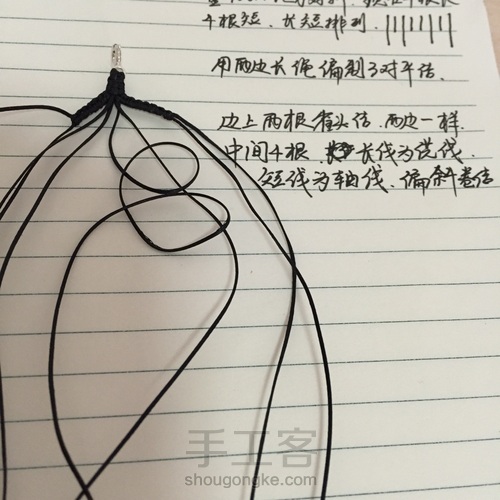 4根短，长短排列.
用两边长绳编制3对平结.
边上两根雀头结.两边一样.
中间4根.长线为绕线.
短线为轴线、编斜卷结
手工客
shougongke.com